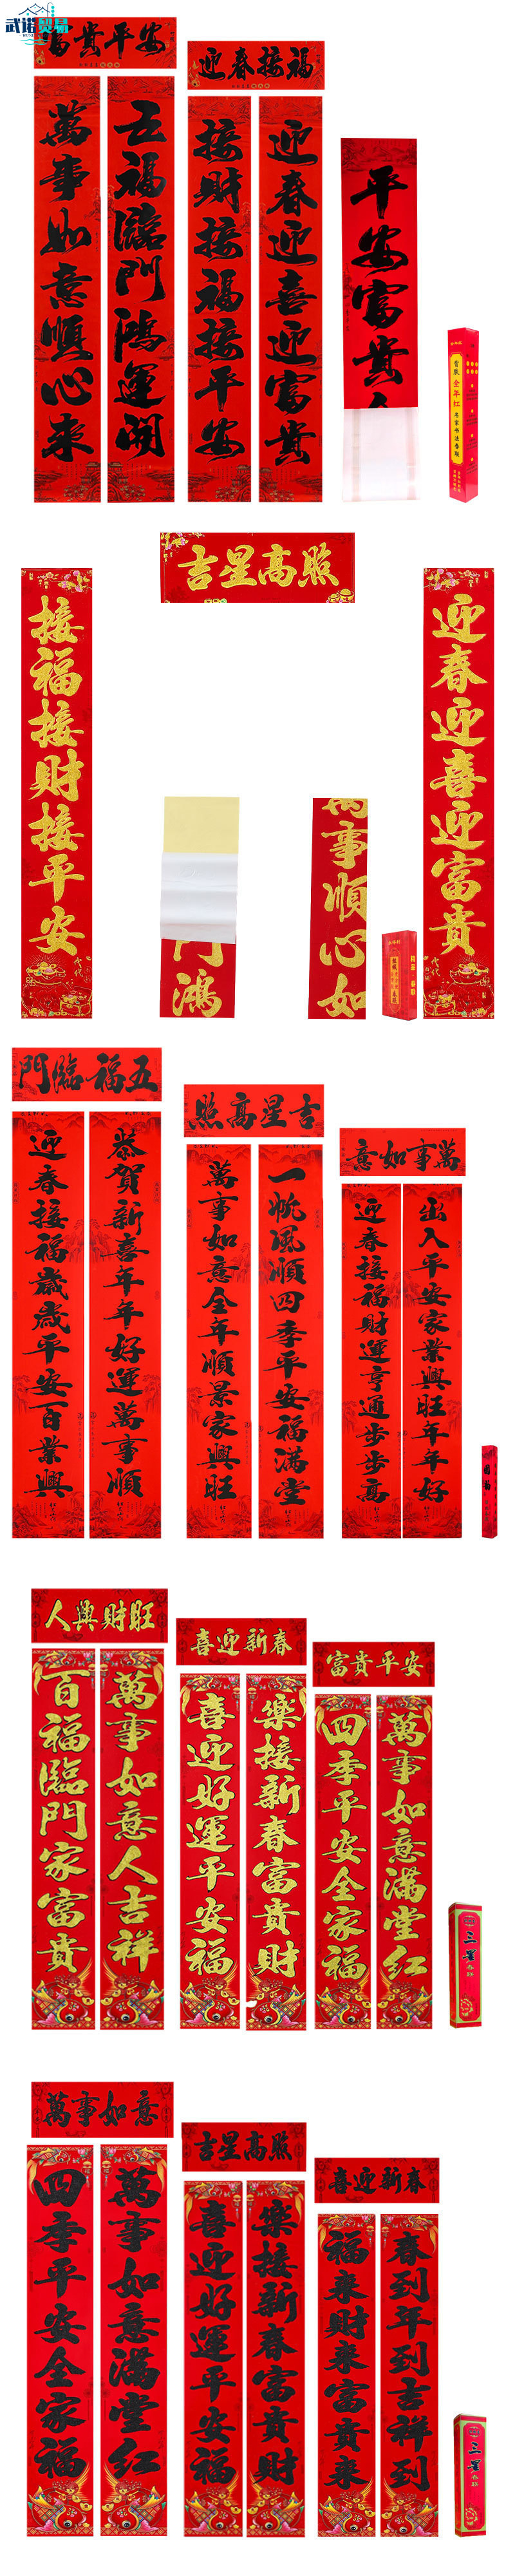 武诺贸易
富貴平安
萬事如意順心來
五福臨門鴻運開
迎春接福
接財接福接平安
迎春迎喜迎富貴
平安富貴
背胶 全年红 名家书法春联
吉星高照
接福接財接平安
迎春迎喜迎富貴
門鴻
萬事順心如
門臨福五
迎春接福歲歲平安百業興
恭賀新喜年年好運萬事順
照高星吉
萬事如意全年順景家興旺
一帆風順四季平安福滿堂
意如事萬
迎春接福財運亨通步步高
出入平安家業興旺年年好
人興財旺
百福臨門家富貴
萬事如意人吉祥
喜迎新春
喜迎好運平安福
樂接新春富貴財
富貴平安
四季平安全家福
萬事如意滿堂红
三星春联
萬事如意
四季平安全家福
萬事如意滿堂红
吉星高照
喜迎好運平安福
樂接新春富貴財
喜迎新春
福来財来富貴来
春到年到吉祥到
三星春联